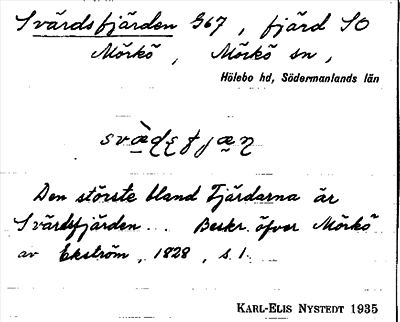 Svärdsfjärden G67, fjärd SO
Mörkö, Mörkö sn,
Hölebo hd, Södermanlands län
Den störste bland Fjärdarna är
Svärdsfjärden... Beskr. öfver Mörkö
av Ekström, 1828, s. 1.
KARL-ELIS NYSTEDT 1935